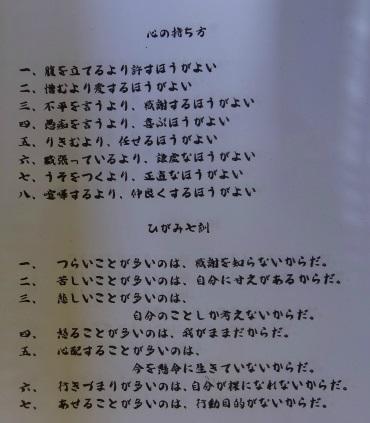 心の持ち方
一、腹を立てるより許すほうがよい
二、憎むより愛するほうがよい
三、不平を言うより、感謝するほうがよい
四、愚痴を言うより、喜ぶほうがよい
五、りきむより、任せるほうがよい
六、威張っているより、謙虚なほうがよい
七、うそをつくより、正直なほうがよい
八、喧嘩するより、仲良くするほうがよい
ひがみ七訓
一、 つらいことが多いのは、感謝を知らないからだ。
二、 苦しいことが多いのは、自分に甘えがあるからだ。
三、 悲しいことが多いのは、
自分のことしか考えないからだ。
四、 怒ることが多いのは、我がままだからだ。
五、 心配することが多いのは、
今を懸命に生きていないからだ。
六、 行きづまりが多いのは、自分が裸になれないからだ。
七、 あせることが多いのは、行動目的がないからだ。